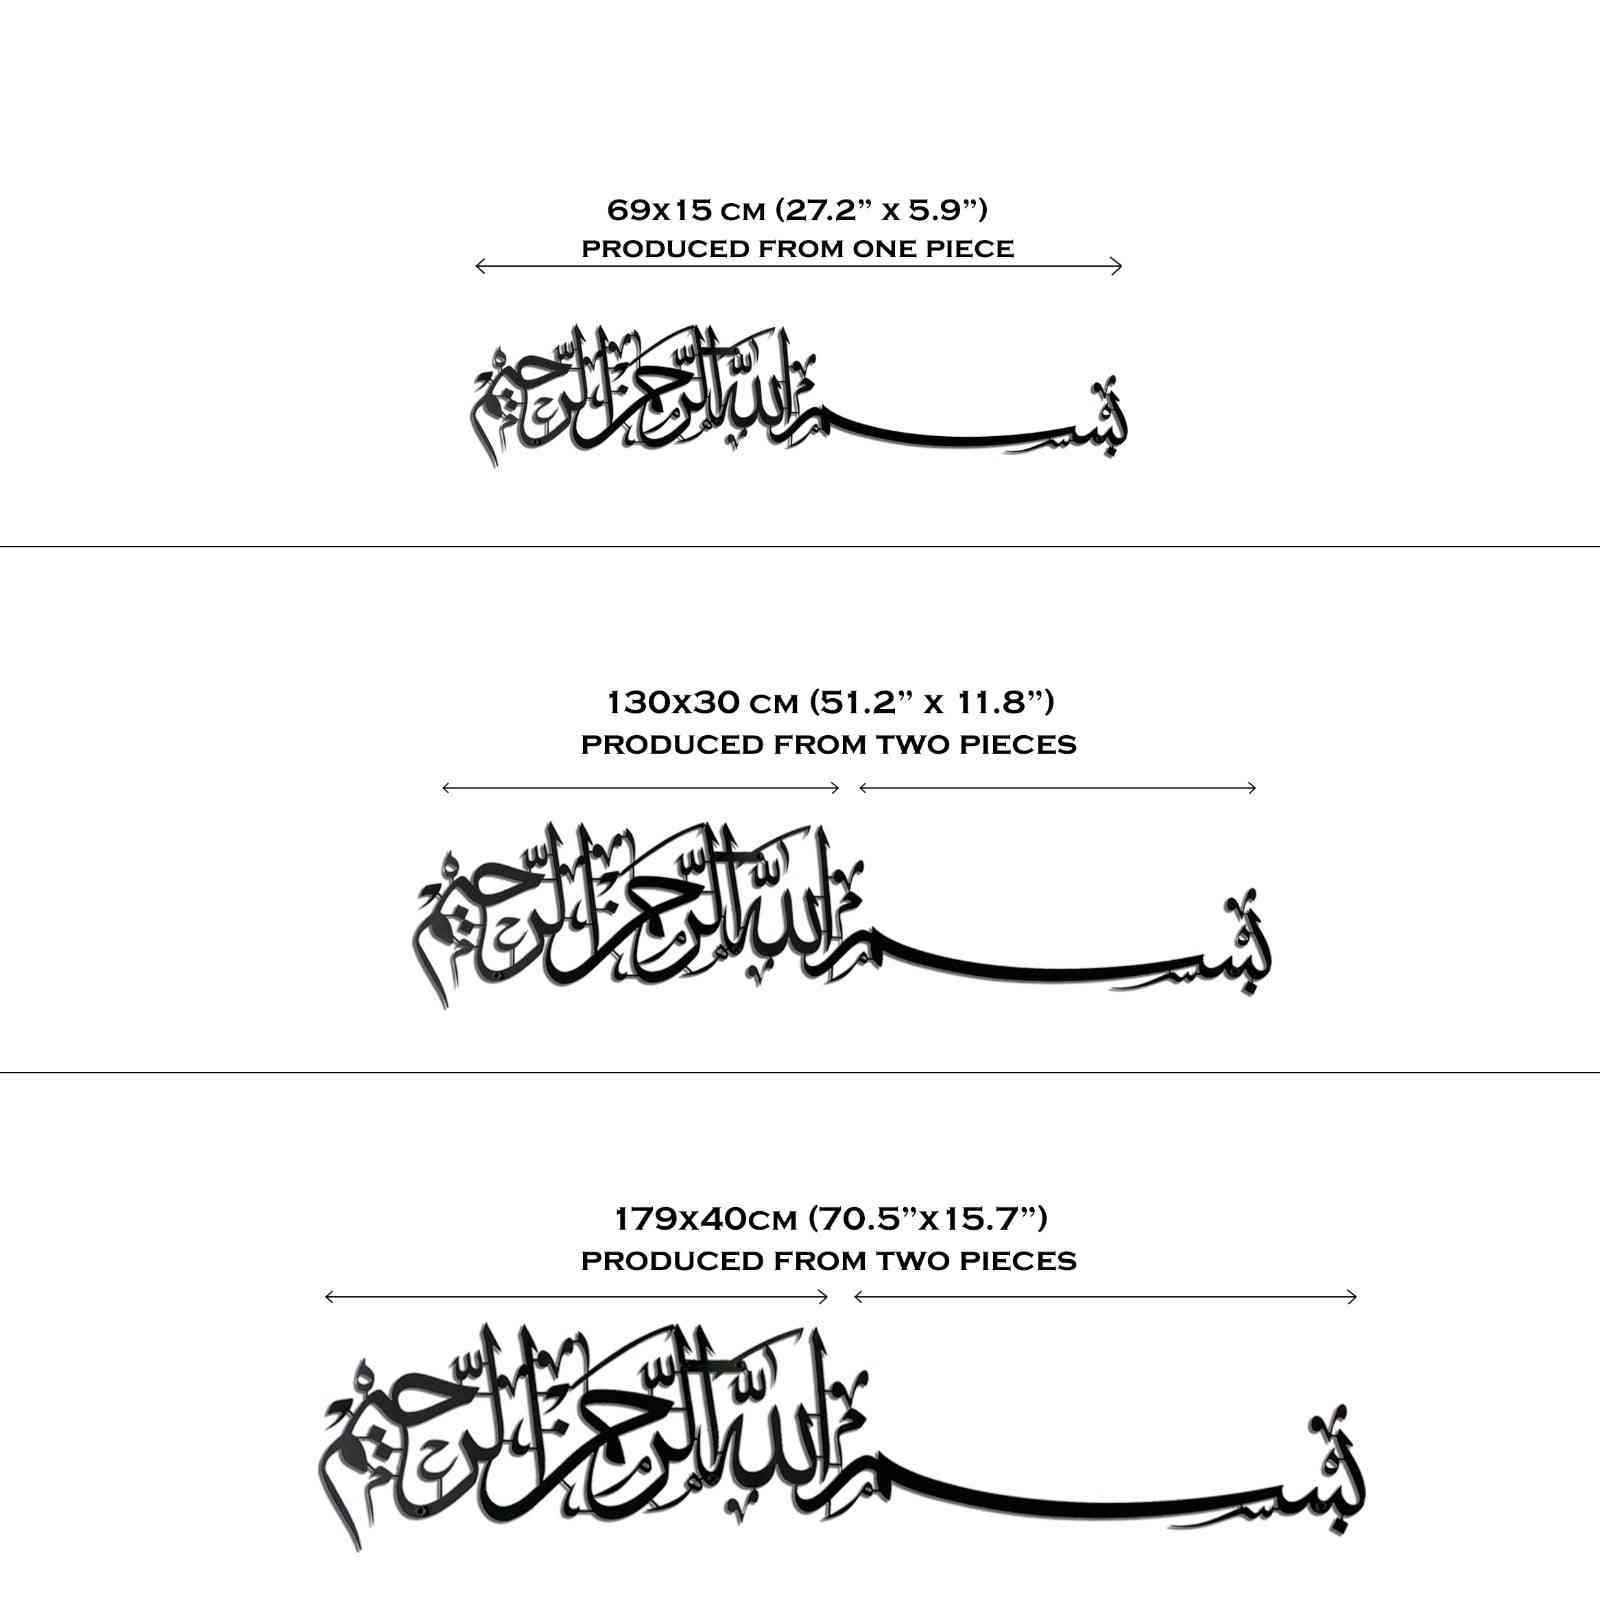 69x15 CM (27.2” x 5.9”)
PRODUCED FROM ONE PIECE
بسم الله الرحمن الرحيم
130x30 CM (51.2” x 11.8”)
PRODUCED FROM TWO PIECES
بسم الله الرحمن الرحيم
179x40CM (70.5”x15.7”)
PRODUCED FROM TWO PIECES
بسم الله الرحمن الرحيم